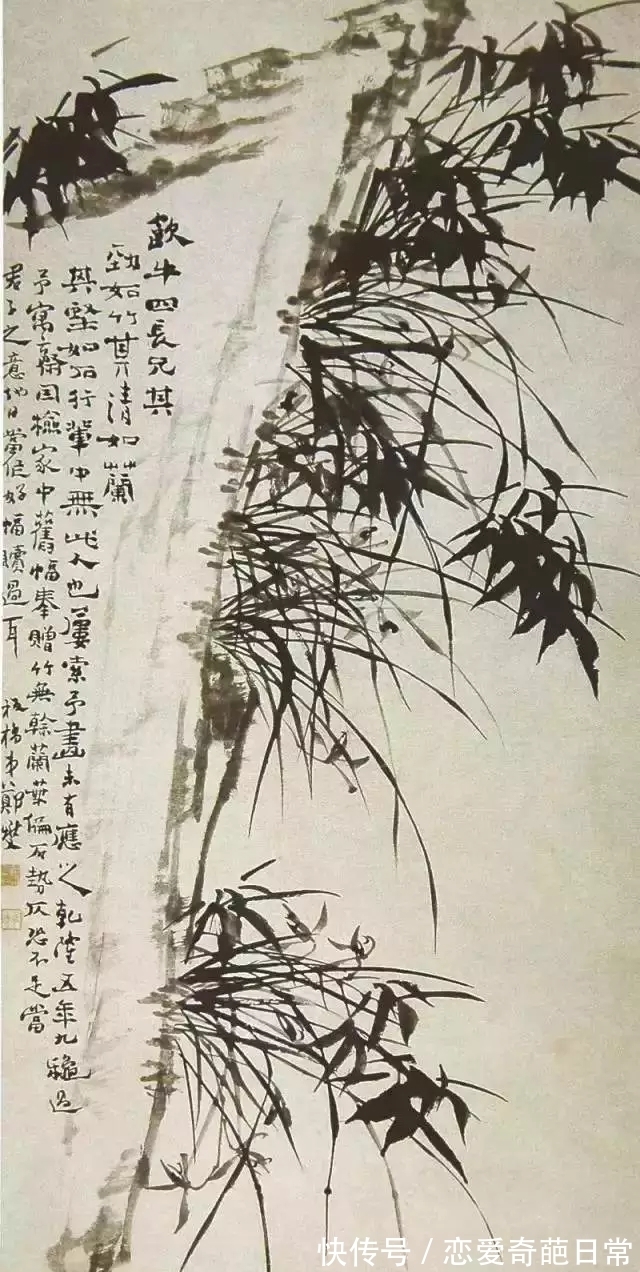 歙牛四長兄其
勁如竹其清如蘭
其堅如石行輩中無此人也屢索予畫未有應之乾隆五年九穐過
予寓齋因檢家中舊幅奉贈竹無榦蘭葉偏石勢仄恐不足當
君子之意他日當作好幅贖過耳 板橋弟鄭燮
快传号 / 恋爱奇葩日常